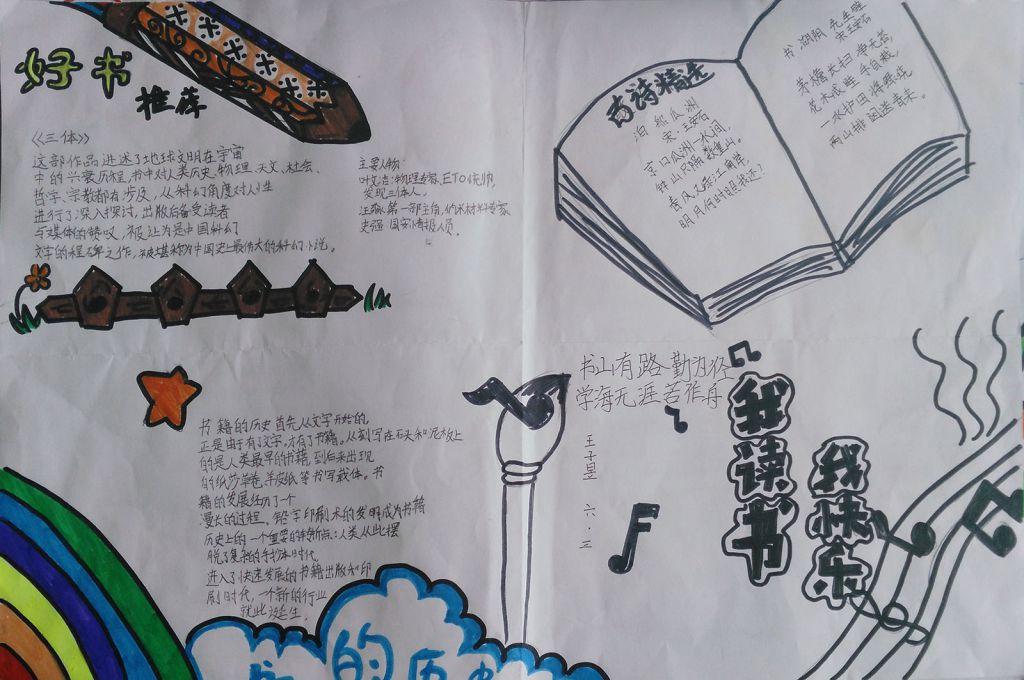 好书
推荐
《三体》
这部作品讲述了地球文明在宇宙
中的兴衰历程,书中对人类历史、物理、天文、社会、
哲学、宗教都有涉及,从科幻角度对人性
进行了深入探讨,出版后备受读者
与媒体的赞叹,被认为是中国科幻
文学的里程碑之作,被堪称为中国史上最伟大的科幻小说。
主要人物:
叶文洁:物理专家,ETO统帅,
发现三体人。
汪淼:第一部主角,纳米材料专家
史强:国安情报人员。
古诗精选
泊船瓜洲
宋·王安石
京口瓜洲一水间,
钟山只隔数重山。
春风又绿江南岸,
明月何时照我还?
书湖阴先生壁
宋王安石
茅檐长扫净无苔,
花木成畦手自栽,
一水护田将绿绕
两山排闼送青来。
书山有路勤为径
学海无涯苦作舟
王子昱 六·三
我读书
我快乐
书籍的历史首先从文字开始的,
正是由于有了文字,才有了书籍。从刻写在石头和泥板上
的是人类最早的书籍,到后来出现
的纸莎草卷、羊皮纸等书写载体。书
籍的发展经历了一个
漫长的过程,铅字印刷术的发明成为书籍
历史上的一个重要的转折点:人类从此摆
脱了复杂的手抄本时代,
进入了快速发展的书籍出版和印
刷时代,一个新的行业
就此诞生。
的历史